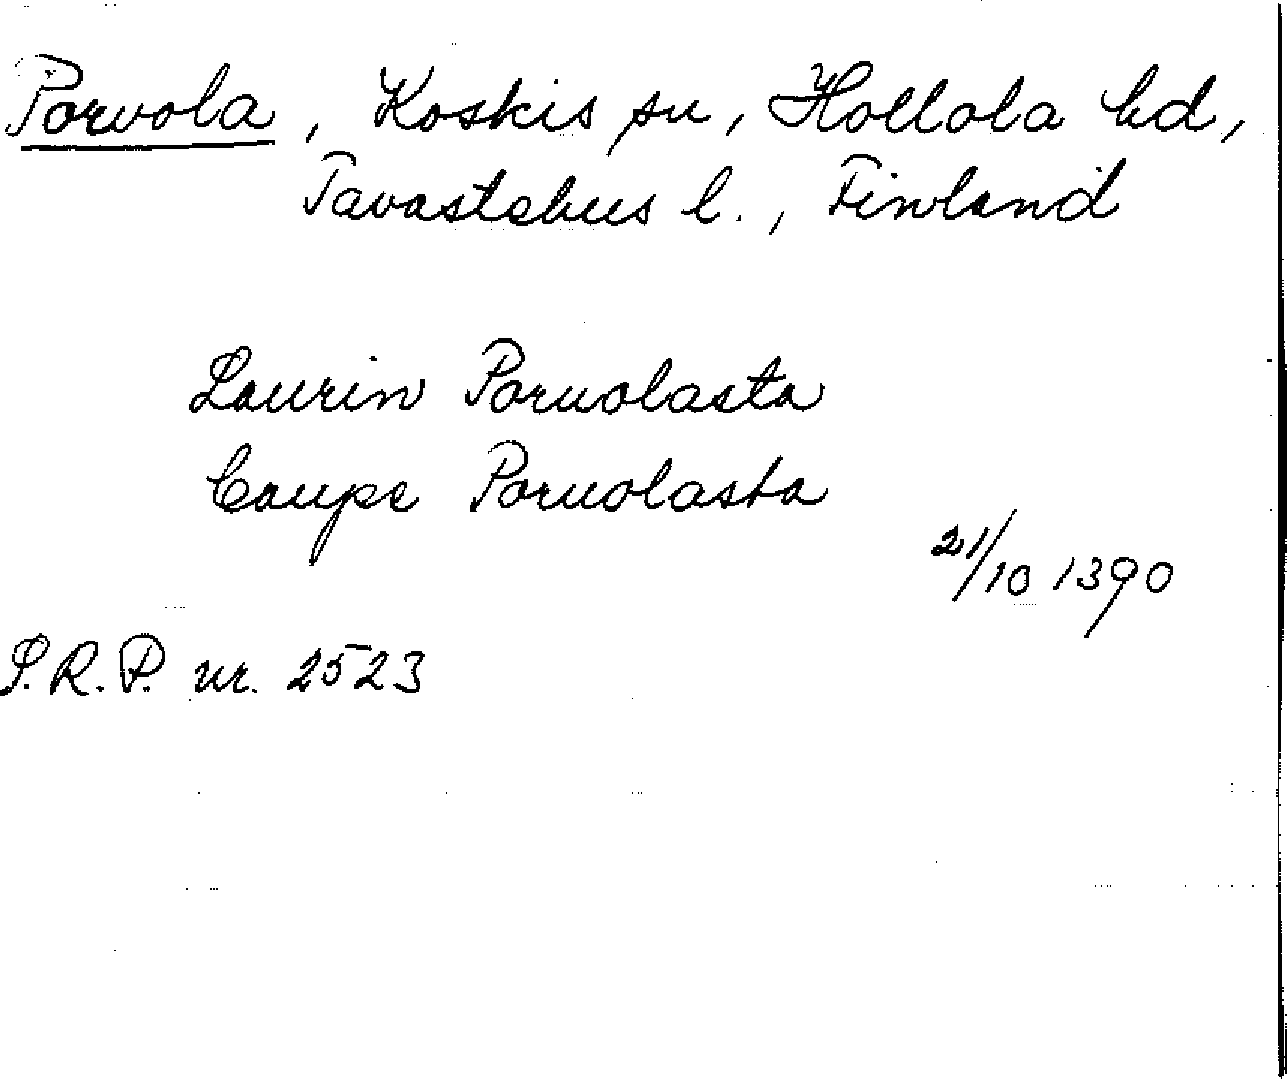 Porvola, Koskis sn, Hollola hd,
Tavastehus l., Finland
Laurin Poruolasta
Caupe Poruolasta
21/10 1390
S.R.P. nr. 2523